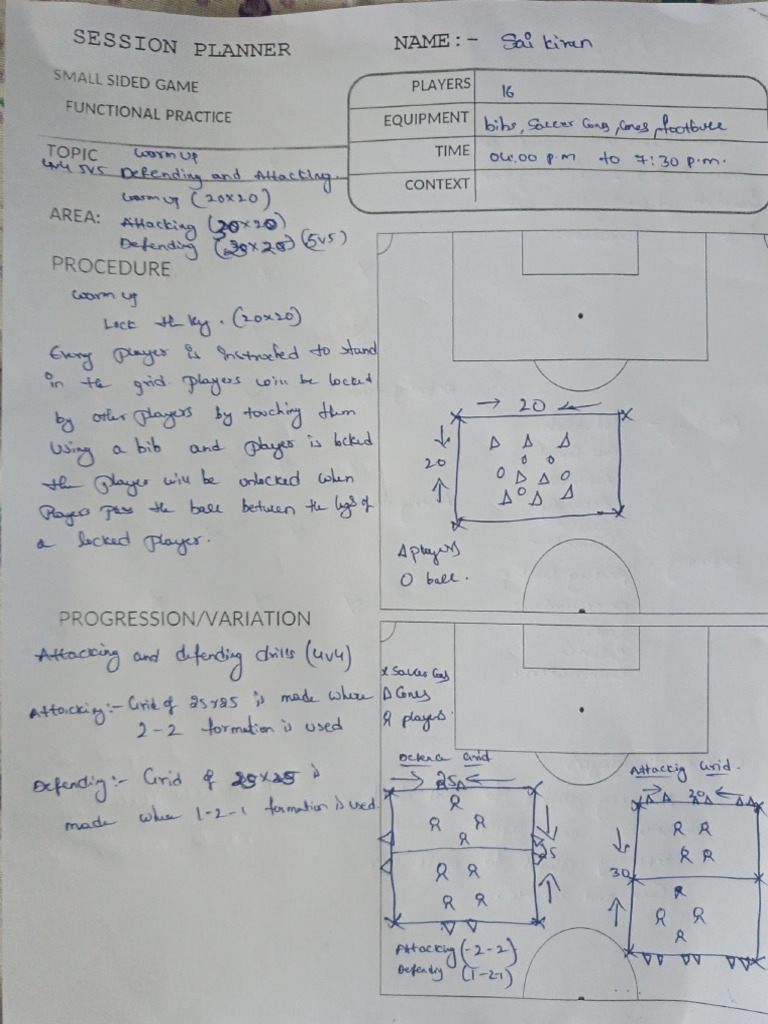 SESSION PLANNER
NAME :- Sai kiran
SMALL SIDED GAME
FUNCTIONAL PRACTICE
PLAYERS 16
EQUIPMENT bibs, Saccer Cones, Cones, football
TIME 04.00 p.m to 7:30 p.m.
CONTEXT
TOPIC worm up
4v4 5v5 Defending and Attacking.
worm up (20x20)
AREA: Attacking (30x20)
Defending (20x20) (5v5)
PROCEDURE
worm up
Lock the key. (20x20)
Every player is instructed to stand
in the grid. players will be locked
by other players by touching them
Using a bib and player is locked
the player will be unlocked when
Players pass the ball between the legs of
a locked player.
→ 20 ←
20
Δ players
O ball.
PROGRESSION/VARIATION
Attacking and defending drills (4v4)
Attacking:- Grid of 25x25 is made where
2-2 formation is used
Defending:- Grid of 25x25 is
made where 1-2-1 formation is used.
x Saucer Cones
Δ Cones
players.
Defence Grid
→ 25 ←
25
Attacking (-2-2)
Defending (1-2-1)
Attacking Grid.
→ 30 ←
30